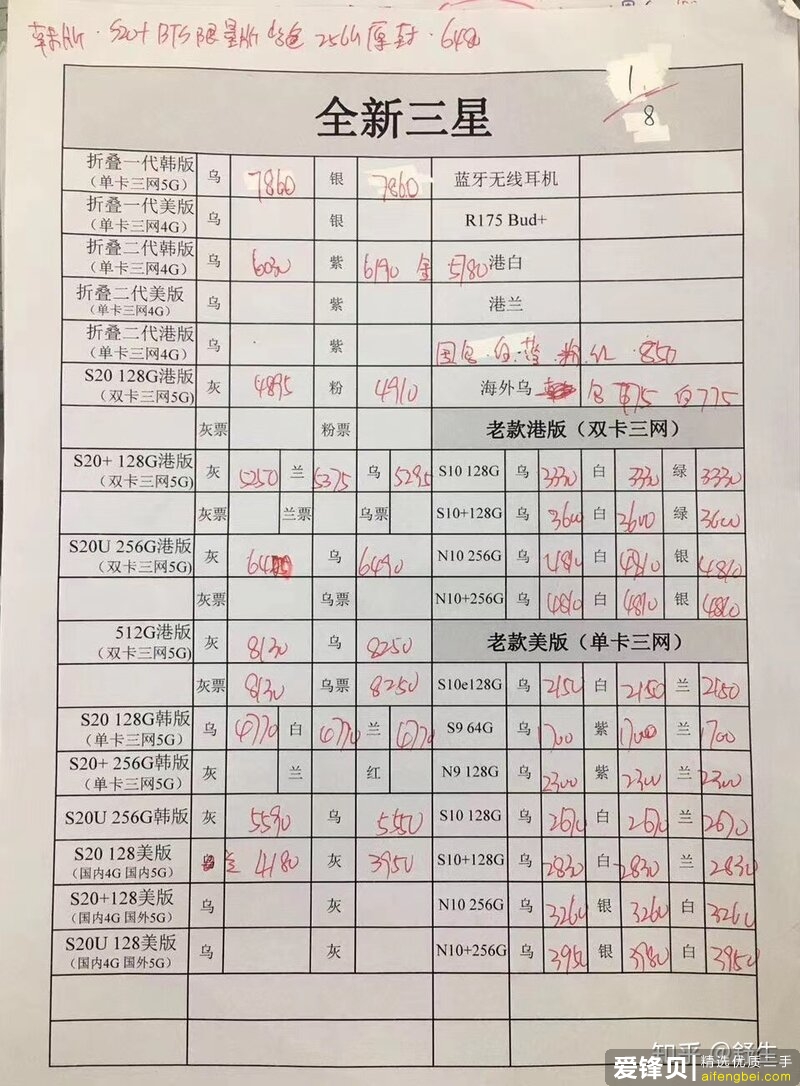 韩版·S20+ BTS限量版 256G 原封·6480
全新三星
1/8
折叠一代韩版 乌 7860 银 7860 蓝牙无线耳机
(单卡三网5G)
折叠一代美版 乌 银 R175 Bud+
(单卡三网4G)
折叠二代韩版 乌 6030 紫 6190 金 5780 港白
(单卡三网4G)
折叠二代美版 乌 紫 港兰
(单卡三网4G)
折叠二代港版 乌 紫 国包·白·蓝·粉·红·850
(单卡三网4G)
S20 128G港版 灰 4895 粉 4910 海外乌 775 白775
(双卡三网5G)
灰票 粉票 老款港版(双卡三网)
S20+ 128G港版 灰 5250 兰 5375 乌 5295 S10 128G 乌 3330 白 3330 绿 3330
(双卡三网5G)
灰票 兰票 乌票 S10+128G 乌 3600 白 3600 绿 3600
S20U 256G港版 灰 乌 6490 N10 256G 乌 4810 白 4810 银 4810
(双卡三网5G)
灰票 乌票 N10+256G 乌 4810 白 4810 银 4810
512G港版 灰 8130 乌 8250 老款美版(单卡三网)
(双卡三网5G)
灰票 8130 乌票 8250 S10e128G 乌 2150 白 2150 兰 2150
S20 128G韩版 乌 4770 白 4770 兰 4770 S9 64G 乌 1700 紫 1700 兰 1700
(单卡三网5G)
S20+ 256G韩版 灰 兰 红 N9 128G 乌 2300 紫 2300 兰 2300
(单卡三网5G)
S20U 256G韩版 灰 5590 乌 5550 S10 128G 乌 2670 白 2670 兰 2670
S20 128美版 4180 灰 3950 S10+128G 乌 2830 白 2830 兰 2830
(国内4G 国内5G)
S20+128美版 乌 灰 N10 256G 乌 3260 银 3260 白 3260
(国内4G 国外5G)
S20U 128美版 乌 灰 N10+256G 乌 3950 银 3980 白 3950
(国内4G 国外5G)
知乎 @舒生
爱锋贝 精选优质二手
aifengbei.com